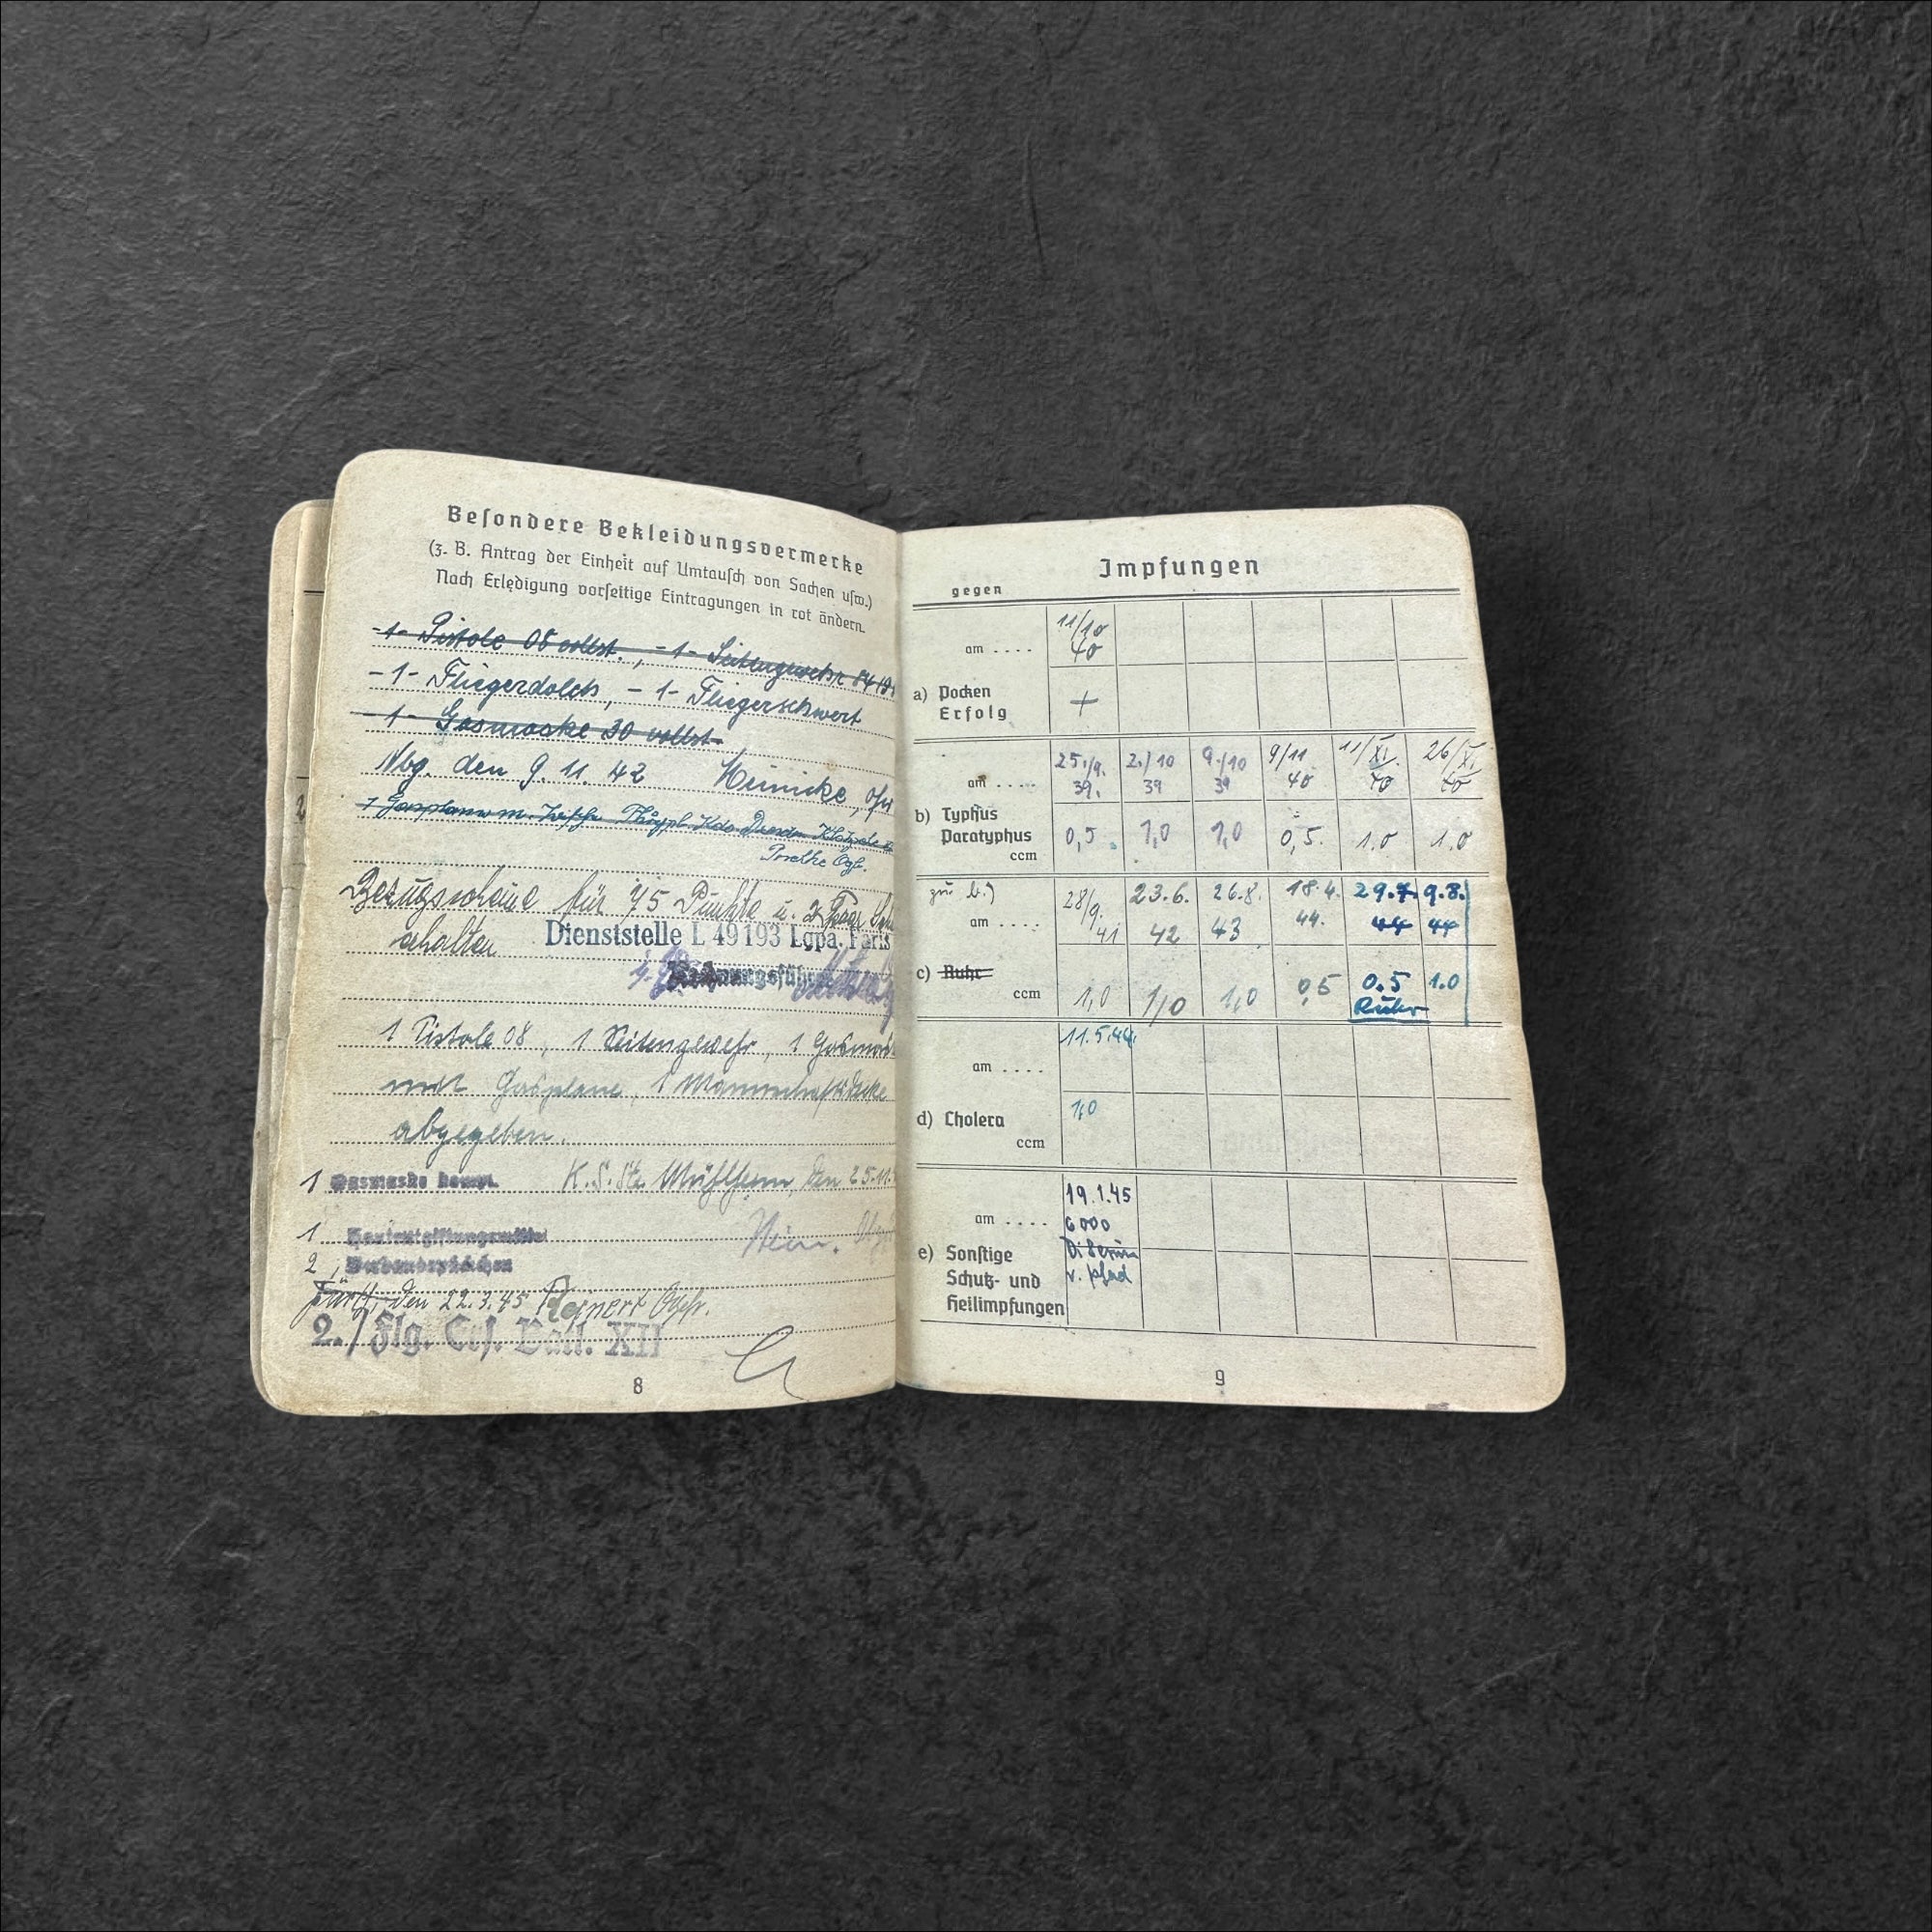 Besondere Bekleidungsvermerke
(z. B. Antrag der Einheit auf Umtausch von Sachen usw.)
Nach Erledigung vorseitige Eintragungen in rot ändern.
-1- Pistole 08 vollst., -1- Seitengewehr 84/98
-1- Fliegerdolch, -1- Fliegerschwert
-1- Gasmaske 30 vollst.
Nbg. den 9. 11. 42 Heinicke, Ofw
1 Gasplane m.
Bezugscheine für 45 Punkte u. 2 Paar
erhalten Dienststelle L 49193 Lgpa. Paris
Rechnungsführer
1 Pistole 08, 1 Seitengewehr, 1 Gasmas
mit Gasplane, 1 Mannschaftsdecke
abgegeben.
1 Gasmaske kompl. K.S.St. Mühlheim, den 25.11.
1 Hautentgiftungsmittel
2 Verbandspäckchen
Fürth, den 22.3.45 Ogefr.
2./Flg. Ers. Batl. XII
8
Impfungen
gegen
am .... 11/10 40
a) Pocken
Erfolg +
am .... 25./9. 39. 2./10 39 9./10 39 9/11 40 11/XI. 40 26/XI 40
b) Typhus
Paratyphus 0,5 1,0 1,0 0,5. 1.0 1.0
ccm
zu b.)
am .... 28/9. 41 23.6. 42 26.8. 43 18.4. 44. 29.7. 44 9.8. 44
c) Ruhr
ccm 1,0 1,0 1,0 0,5 0.5 Ruhr 1.0
am .... 11.5.44.
d) Cholera 1,0
ccm
am .... 19.1.45
6000
e) Sonstige Di Serum
Schutz- und v. Pferd
Heilimpfungen
9